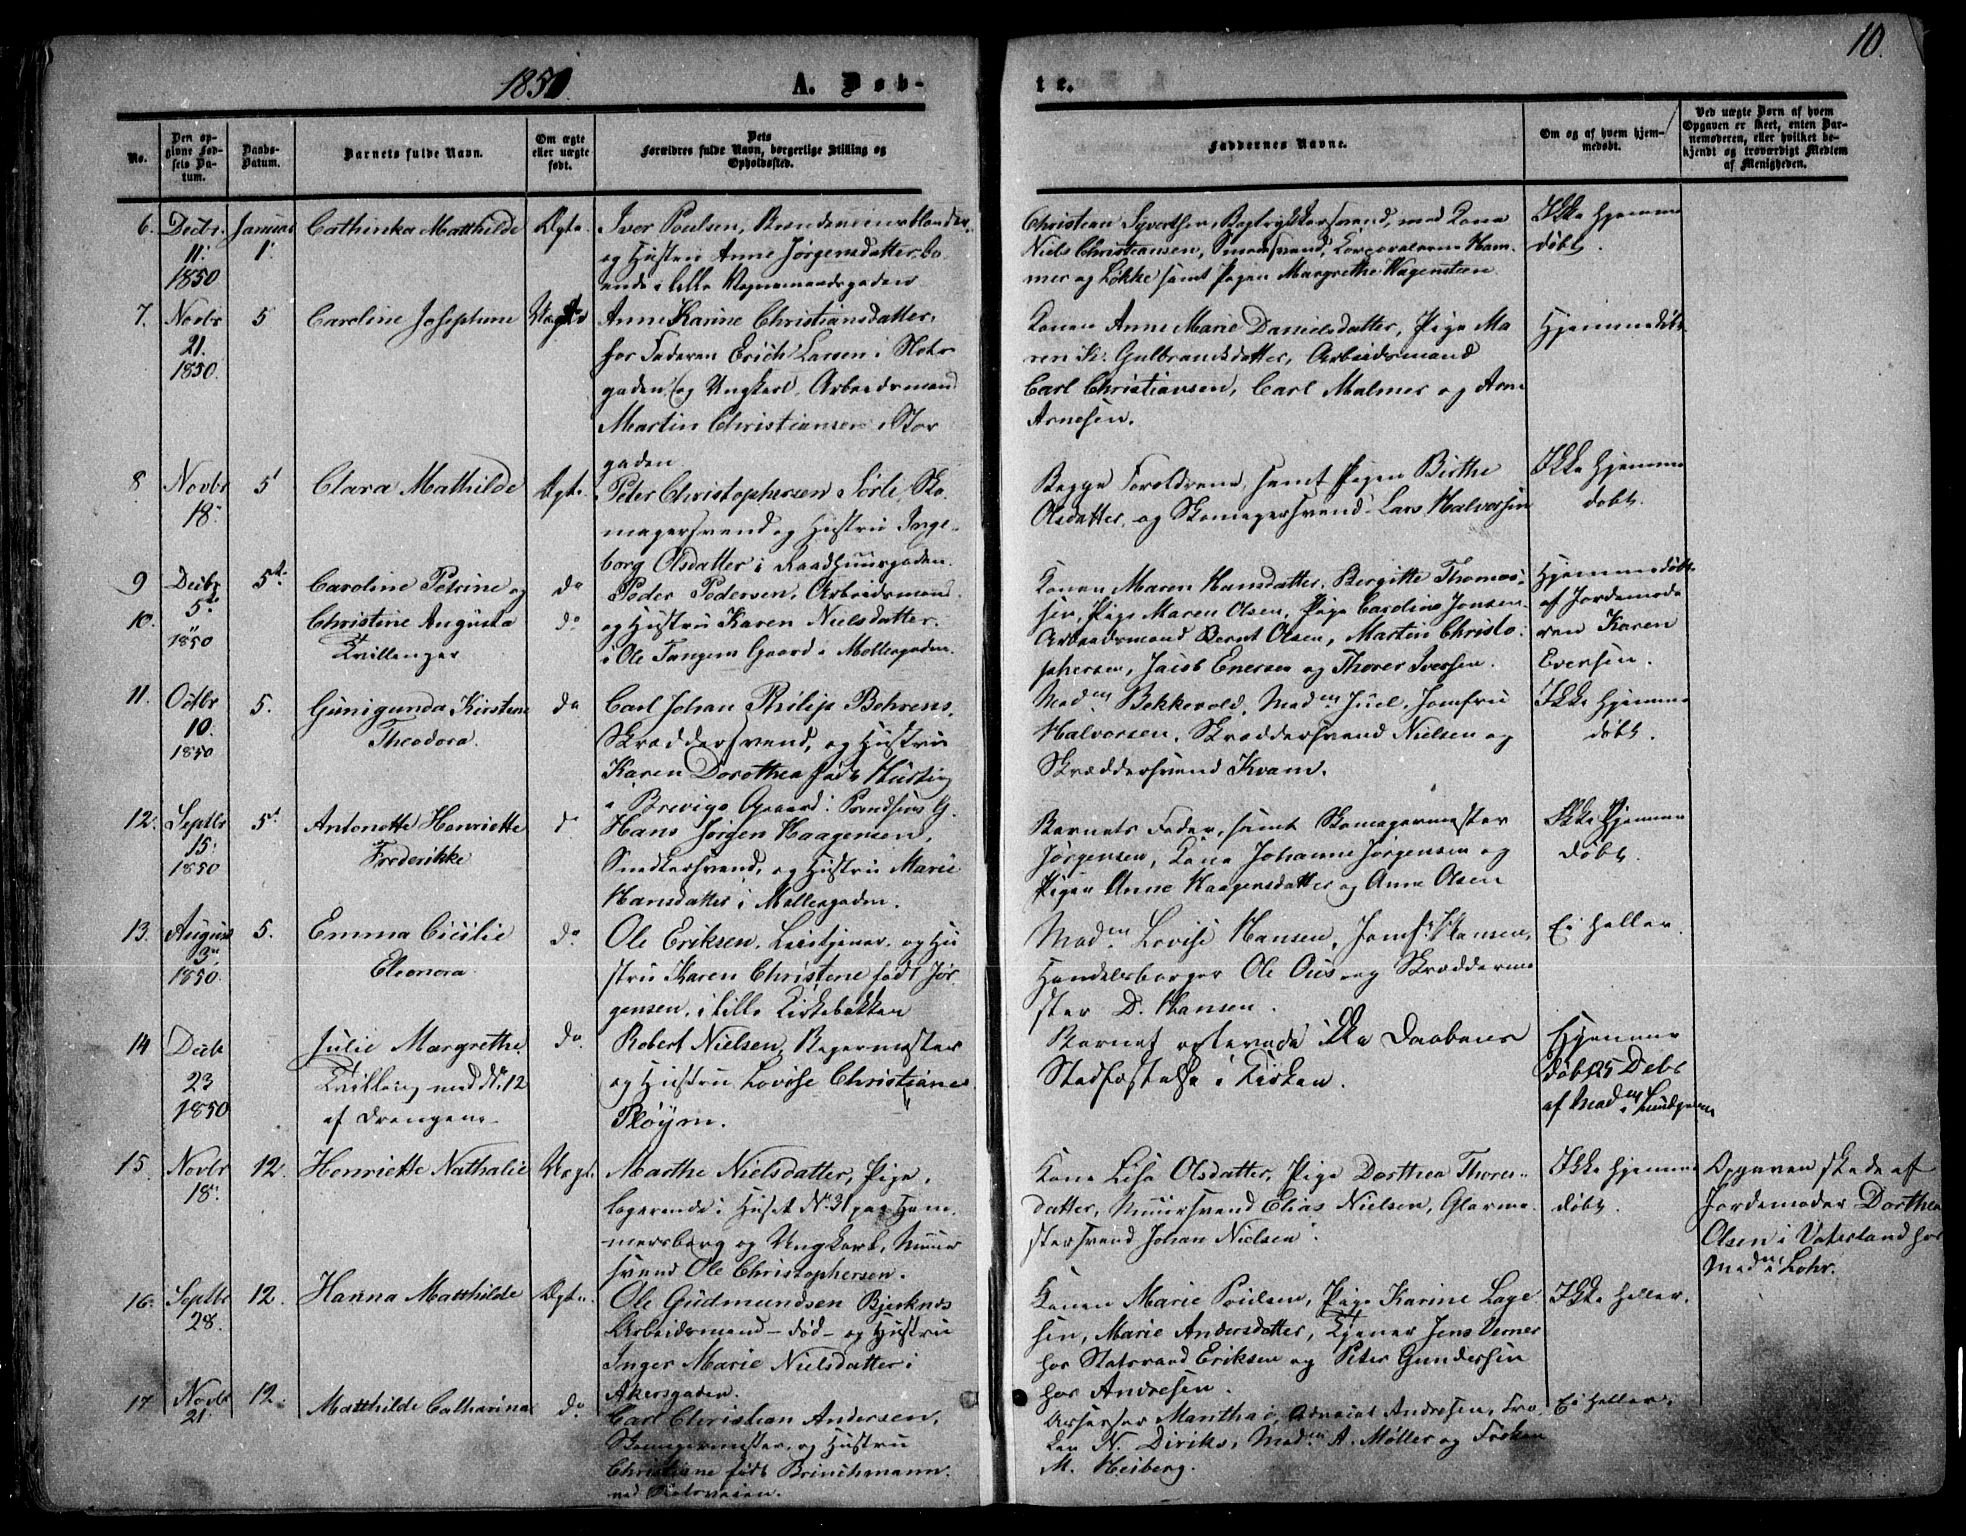 10.
1851. A. Døb-
te.
No.
Den op-
givne Fød-
sels Da-
tum.
Daabs-
Datum.
Barnets fulde Navn.
Om ægte
eller uægte
født.
Dets
Forældres fulde Navn, borgerlige Stilling og
Opholdssted.
Faddernes Navne.
Om og af hvem hjem-
medøbt.
Ved uægte Børn af hvem
Opgaven er skeet, enten Bar-
nemoderen, eller hvilket be-
kjendt og troværdigt Medlem
af Menigheden.
6. Decbr. 11. 1850 Januar 1. Cathinka Matthilde Ægte.
Iver Poulsen,
og Hustru Anne Jørgensdatter, bo
ende i lille Vognmandsgaden
Christian Syvertsen, svend, med Kone
Niels Christiansen, Smedsvend, Corporalerne Ham-
mer og Løkke samt Pigen Margrethe Wagensteen
Ikke hjemme
døbt.
7. Novbr 21. 1850. 5 Caroline Josephine Uægte
Anne Karine Christiansdatter,
hos Faderen Erich Larsen i Stor
gaden, og Ungkarl, Arbeidsmand
Martin Christiansen i Stor
gaden
Konen Anne Marie Danielsdatter, Pige Ma
ren K. Gulbrandsdatter, Arbeidsmand
Carl Christiansen, Carl Malmer og Arn
Arnesen.
Hjemmedøbt
8 Novbr 18. 5t Clara Mathilde Ægte
Peter Christophersen Sørle, Sko-
magersvend og Hustru Inge-
borg Olsdatter i Raadhuusgaden.
Begge Forældrene, samt Pigen Birthe
Olsdatter, og Skomagersvend Lars Halvorsen
Ikke hjemme
døbt.
9 Decbr 5te 1850 5te Caroline Petrine og do
10. Christine Augusta do
Tvillinger
Peder Pedersen, Arbeidsmand
og Hustru Karen Nielsdatter.
i Ole Tangens Gaard i Møllergaden.
Konen Maren Hansdatter, Bergitte Thomas-
sen, Pige Maren Olsen, Pige Caroline Jonsen
Arbeidsmand Bernt Olsen, Martin Christo-
phersen, Jacob Enersen og Thorer Iversen.
Hjemmedøbt
af Jordemode
ren Karen
Eversen.
11. Octbr 10. 1850 5. Gunigunda Kirstine do
Theodora.
Carl Johan Philip Behrens,
Skræddersvend, og Hustru
Karen Dorothea født
i Brevigs Gaard i G.
Madm Bekkevold, Madm Juel, Jomfru
Halvorsen, Skræddersvend Nielsen og
Skræddersvend Kvam.
Ikke hjemme
døbt.
12. Septbr 15. 1850 5t Antonette Henriette do
Frederikke
Hans Jørgen Haagensen,
Snedkersvend, og Hustru Marie
Hansdatter i Møllergaden.
Barnets Fader, samt Skomagermester
Jørgensen, Kone Johanne Jørgensen og
Pigen Anne Haagensdatter og Anne Olsen
Ikke hjemme
døbt.
13. August 3. 1850. 5. Emma Cicilie do
Eleonora.
Ole Eriksen, og Hu
stru Karen Christene født Jør
gensen, i lille Kirkebakken
Madm Lovise Hansen, Jomf. Hansen,
Handelsborger Ole Ous og Skrædderme
ster D. Hansen.
Ei heller.
14 Decbr 23 1850 Julie Margrethe. do
Tvilling med No 12
af Drengene
Robert Nielsen, Bagermester
og Hustru Lovise Christiane
Pløym.
Barnet oplevede ikke Daabens
Stadfæstelse i Kirken.
Hjemme
døbt 25 Debr
af Madm
15. Novbr 18. 12. Henriette Nathalie Uægte
Marthe Nielsdatter, Pige,
logerende i Huset No 31 paa Ham-
mersborg og Ungkarl, Muur
svend Ole Christophersen.
Kone Lisa Olsdatter, Pige Dorthea Thores-
datter, Muursvend Elias Nielsen, Glarme-
stersvend Johan Nielsen.
Ikke hjemme
døbt.
Opgaven skede af
Jordemoder Dorthea
Olsen i Vaterland hos
Madm Lohr.
16. Septbr 28. 12. Hanna Matthilde Ægte.
Ole Gudmundsen Bjerknes
Arbeidsmand – død – og Hustru
Inger Marie Nielsdatter i
Akersgaden.
Konen Marie Poulsen, Pige Karine Lage
sen, Marie Andersdatter, Tjener Jens Verner
hos Statsraad Eriksen og Peter Gundersen
hos Andresen.
Ikke heller.
17 Novbr 21. 12. Matthilde Catharina do
Carl Christian Andersen,
Skomagermester, og Hustru
Christiane født Brinchmann
ved
Assessor Manthey, Advocat Andresen, Frø-
ken N. Diriks, Madm A. Møller og Frøken
M. Heiberg.
Ei heller.